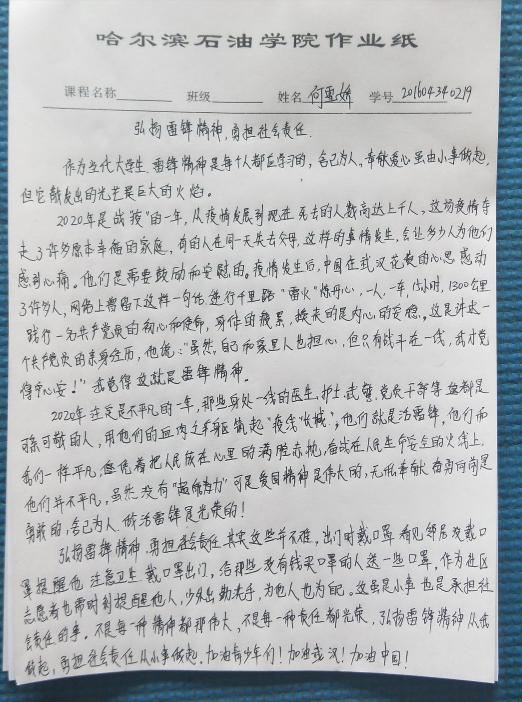 哈尔滨石油学院作业纸
课程名称 班级 姓名 何 娇 学号 201604340219
弘扬雷锋精神,勇担社会责任.
作为当代大学生.雷锋精神是每个人都应学习的,舍己为人,奉献爱心虽由小事做起,
但它散发出的光芒是巨大的火焰。
2020年是战"疫"的一年,从疫情发展到现在死去的人数高达上千人,这场疫情夺
走了许多原本幸福的家庭,有的人在同一天失去父母,这样的事情发生,会让多少人为他们
感到心痛。他们是需要鼓励和安慰的。疫情发生后,中国在武汉花费的心思感动
了许多人,网络上曾留下这样一句话 逆行千里路"雷火"炼丹心,一人,一车,15小时,1300公里
践行一名共产党员的初心和使命,身体的疲累,换来的是内心的安稳。这是讲述一
个共产党员的亲身经历,他说:"虽然,自己和家里人也担心,但只有战斗在一线,我才觉
得更心安!"我觉得这就是雷锋精神。
2020年注定是不平凡的一年,那些身处一线的医生,护士,武警,党员干部等 都是
可敬的人,用他们的血肉之躯筑起"疫线长城",他们就是活雷锋,他们和
我们一样平凡,凭着把人民放在心里的满腔赤忱,奋战在人民生命安全的火湾上,
他们并不平凡,虽然没有"超能力"可是爱国精神是伟大的,无私奉献奋勇向前是
勇敢的,舍己为人 做活雷锋是光荣的!
弘扬雷锋精神.勇担社会责任.其实这些并不难,出门时戴口罩 看见邻居没戴口
罩提醒他 注意卫生 戴口罩出门,给那些没有钱买口罩的人送一些口罩,作为社区
志愿者也需时刻提醒他人,少外出勤洗手,为他人也为自己。这虽是小事也是承担社
会责任的事。不是每一种精神都那伟大,不是每一种责任都光荣,弘扬雷锋精神从我
做起,勇担社会责任从小事做起,加油青少年们!加油武汉!加油中国!